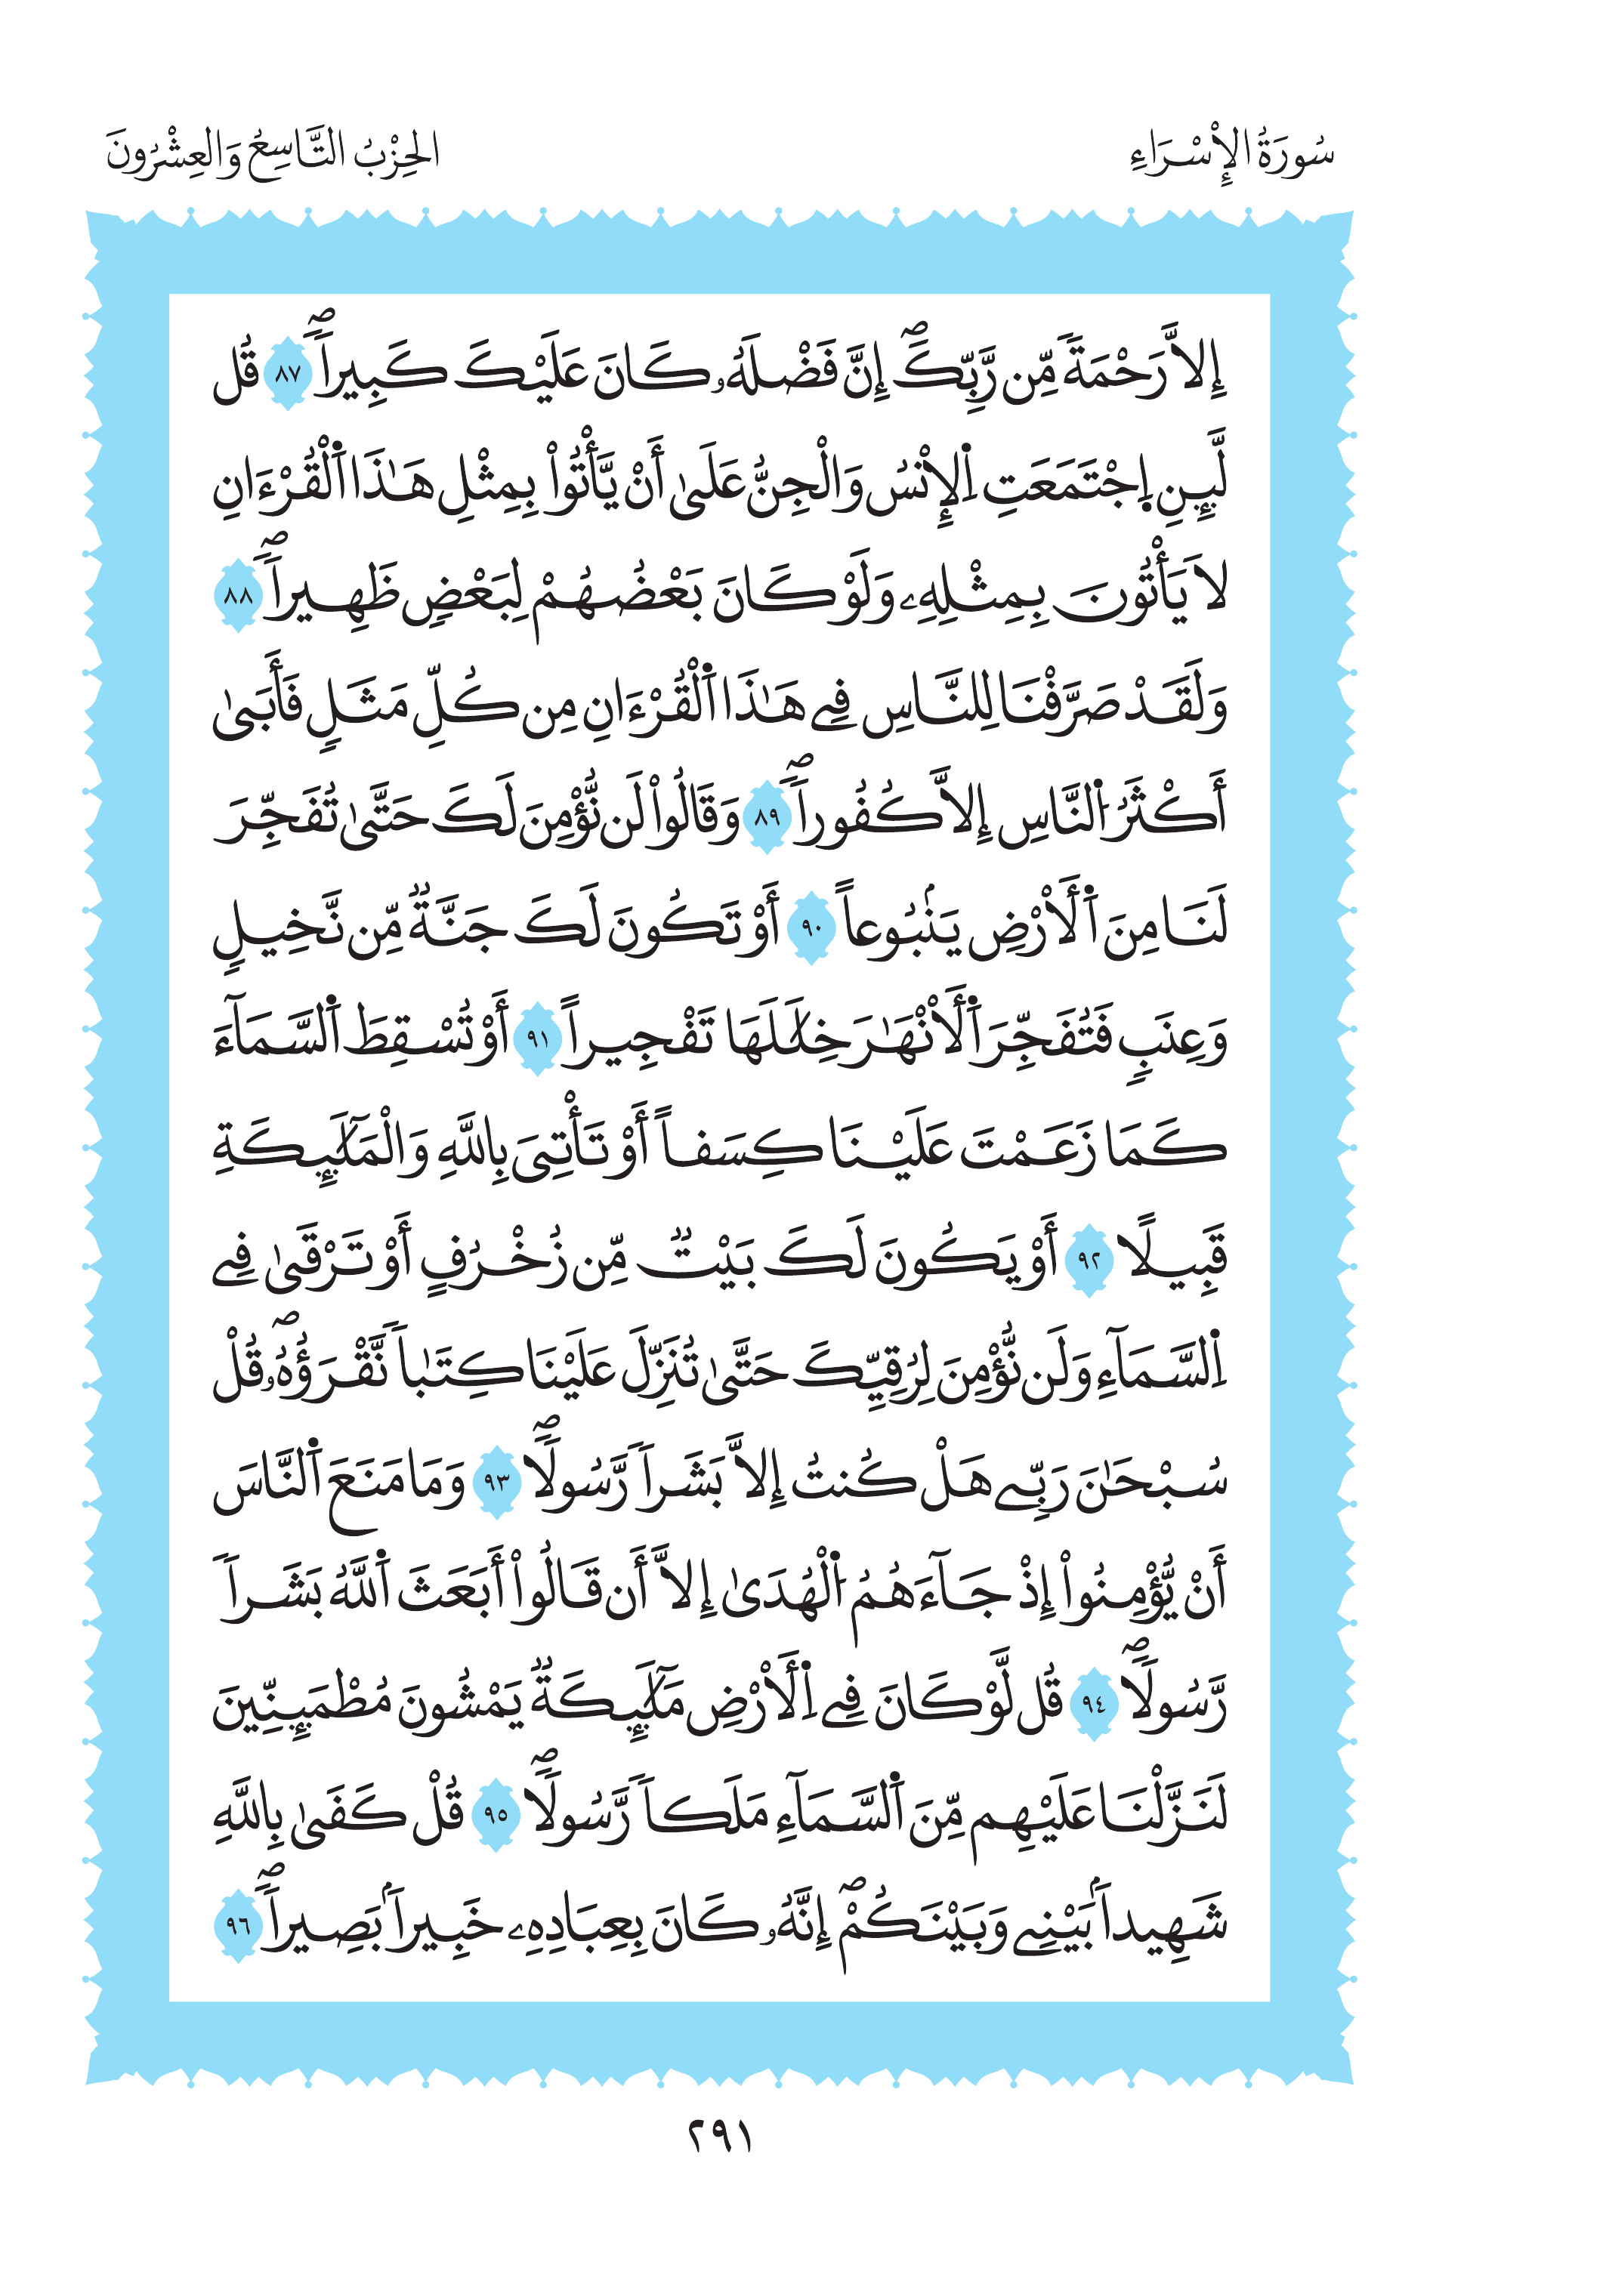 سُورَةُ الإِسْرَاءِ
الحِزْبُ التَّاسِعُ وَالعِشْرُونَ
إِلاَّ رَحْمَةً مِّن رَّبِّكَۖ إِنَّ فَضْلَهُۥ كَانَ عَلَيْكَ كَبِيراًۖ ٨٧ قُل
لَّئِنِ اِ۪جْتَمَعَتِ اِ۬لْإِنسُ وَالْجِنُّ عَلَىٰ أَنْ يَّأْتُواْ بِمِثْلِ هَٰذَا اَ۬لْقُرْءَانِ
لَا يَأْتُونَ بِمِثْلِهِۦ وَلَوْ كَانَ بَعْضُهُمْ لِبَعْضٍ ظَهِيراًۖ ٨٨
وَلَقَدْ صَرَّفْنَا لِلنَّاسِ فِے هَٰذَا اَ۬لْقُرْءَانِ مِن كُلِّ مَثَلٍ فَأَبَىٰ
أَكْثَرُ اُ۬لنَّاسِ إِلاَّ كُفُوراًۖ ٨٩ وَقَالُواْ لَن نُّؤْمِنَ لَكَ حَتَّىٰ تُفَجِّرَ
لَنَا مِنَ اَ۬لَأرْضِ يَنۢبُوعاً ٩٠ أَوْ تَكُونَ لَكَ جَنَّةٌ مِّن نَّخِيلٍ
وَعِنَبٍ فَتُفَجِّرَ اَ۬لَأنْهَٰرَ خِلَٰلَهَا تَفْجِيراً ٩١ أَوْ تُسْقِطَ اَ۬لسَّمَآءَ
كَمَا زَعَمْتَ عَلَيْنَا كِسَفاً أَوْ تَأْتِيَ بِاللَّهِ وَالْمَلَٰٓئِكَةِ
قَبِيلًا ٩٢ أَوْ يَكُونَ لَكَ بَيْتٌ مِّن زُخْرُفٍ أَوْ تَرْقَىٰ فِے
اِ۬لسَّمَآءِ وَلَن نُّؤْمِنَ لِرُقِيِّكَ حَتَّىٰ تُنَزِّلَ عَلَيْنَا كِتَٰباً نَّقْرَؤُهُۥۖ قُلْ
سُبْحَٰنَ رَبِّے هَلْ كُنتُ إِلاَّ بَشَراً رَّسُولًاۖ ٩٣ وَمَا مَنَعَ اَ۬لنَّاسَ
أَنْ يُّؤْمِنُواْ إِذْ جَآءَهُمُ اُ۬لْهُدَىٰ إِلاَّ أَن قَالُواْ أَبَعَثَ اَ۬للَّهُ بَشَراً
رَّسُولًاۖ ٩٤ قُل لَّوْ كَانَ فِے اِ۬لَأرْضِ مَلَٰٓئِكَةٌ يَمْشُونَ مُطْمَئِنِّينَ
لَنَزَّلْنَا عَلَيْهِم مِّنَ اَ۬لسَّمَآءِ مَلَكاً رَّسُولًاۖ ٩٥ قُلْ كَفَىٰ بِاللَّهِ
شَهِيداَۢ بَيْنِے وَبَيْنَكُمْۖ إِنَّهُۥ كَانَ بِعِبَادِهِۦ خَبِيراَۢ بَصِيراًۖ ٩٦
٢٩١